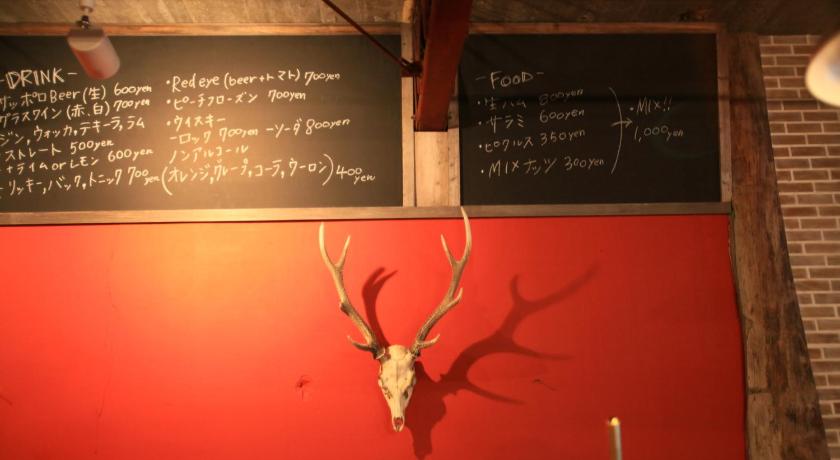 -DRINK-
サッポロBeer(生) 600yen
グラスワイン(赤、白) 700yen
ジン, ウォッカ, テキーラ, ラム
ストレート 500yen
+ライム or レモン 600yen
リッキー, バック, トニック 700yen
・Redeye (beer+トマト) 700yen
・ピーチフローズン 700yen
・ウィスキー
-ロック 700yen -ソーダ 800yen
ノンアルコール
(オレンジ, グレープ, コーラ, ウーロン) 400yen
-FOOD-
・生ハム 800yen
・サラミ 600yen
・ピクルス 350yen
・MIXナッツ 300yen
→・MIX!!
1,000yen